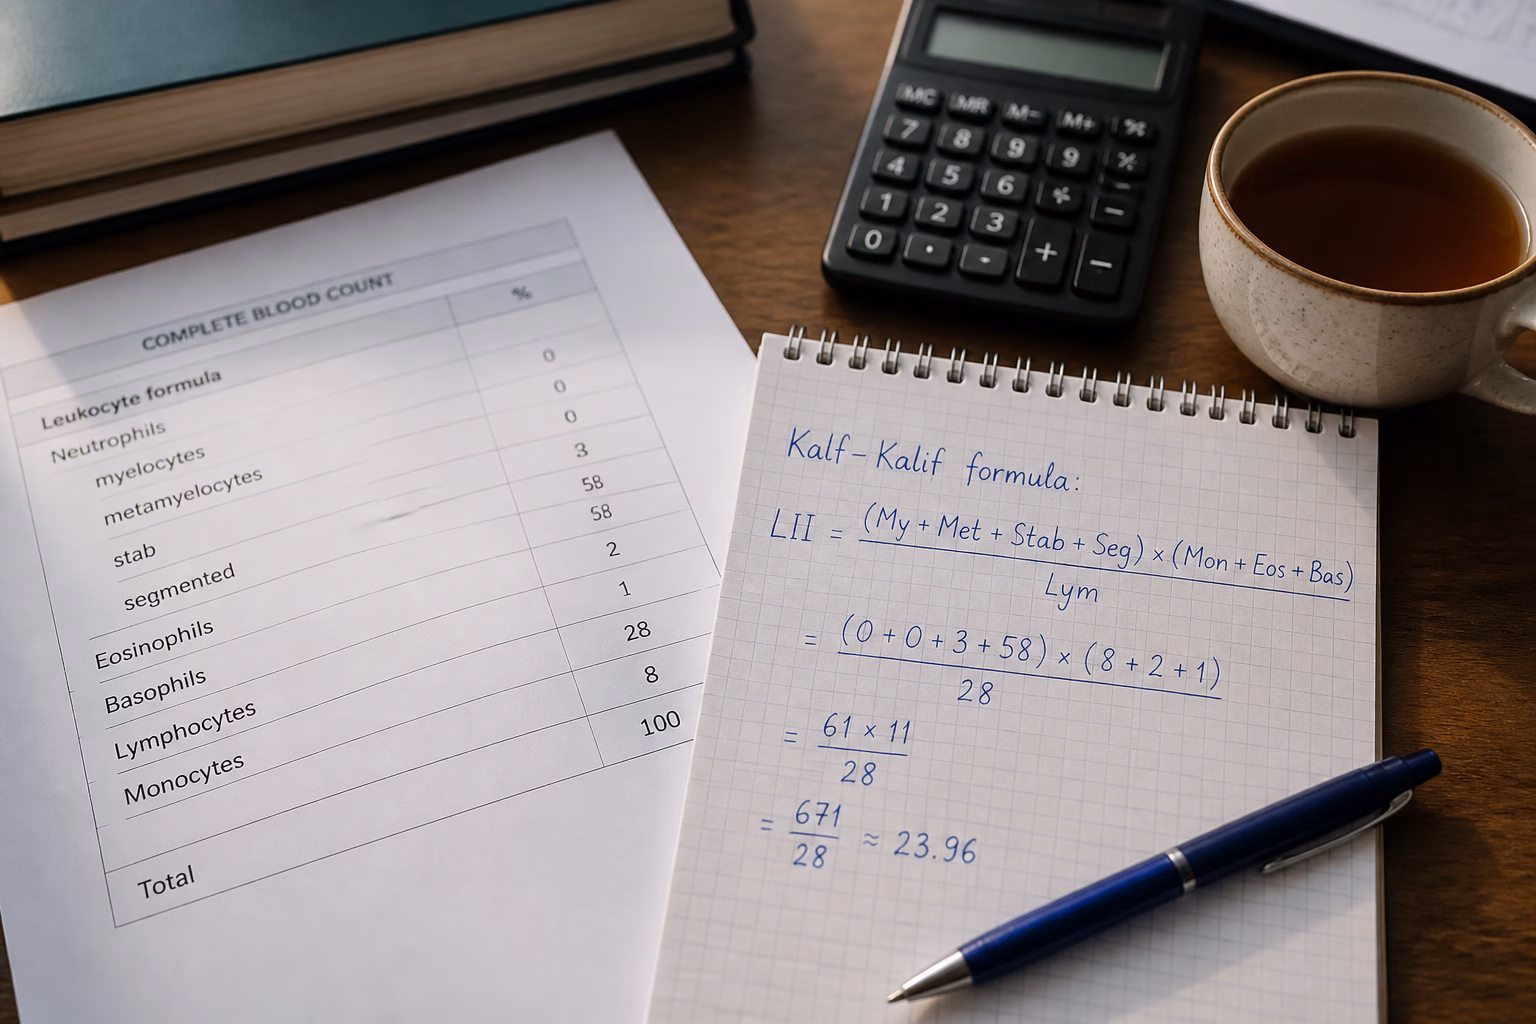 MC MR M− M+ %
7 8 9 9 %
4 5 6 ÷ −
1 2 3 −
0 . - + −
COMPLETE BLOOD COUNT
%
Leukocyte formula
Neutrophils
myelocytes
metamyelocytes
stab
segmented
Eosinophils
Basophils
Lymphocytes
Monocytes
Total
0
0
0
3
58
58
2
1
28
8
100
Kalf-Kalif formula:
LII = (My + Met + Stab + Seg) × (Mon + Eos + Bas)
Lym
= (0 + 0 + 3 + 58) × (8 + 2 + 1)
28
= 61 × 11
28
= 671
28 ≈ 23.96